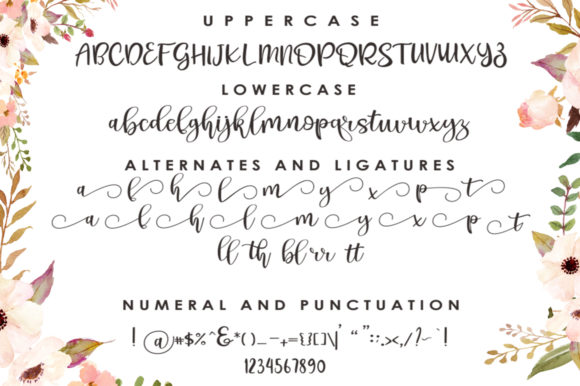 UPPERCASE
ABCDEFGHIJKLMNOPQRSTUVWXYZ
LOWERCASE
abcdefghijklmnopqrstuvwxyz
ALTERNATES AND LIGATURES
a b h l m y x p t
a b h l m y x p t
ll th bl rr tt
NUMERAL AND PUNCTUATION
! @ # $ % ^ & * ( ) _ - + = { } [ ] \ | ' “ ” : ; . < , / ? ~ ` !
1234567890